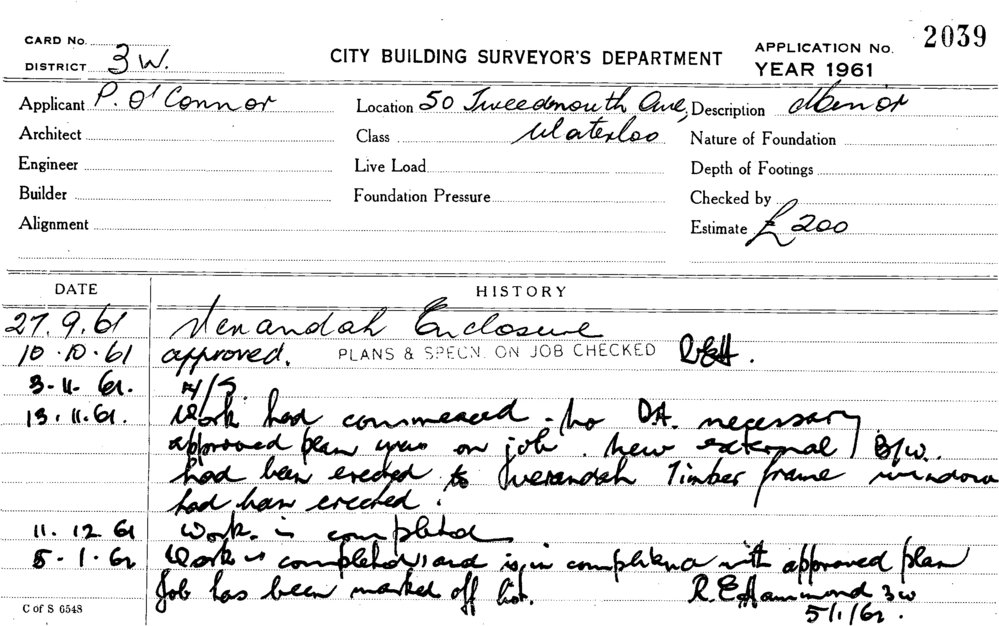 CARD No.
DISTRICT 3 W.
CITY BUILDING SURVEYOR'S DEPARTMENT
APPLICATION No. 2039
YEAR 1961
Applicant P. O'Connor
Location 50 Tweedmouth Ave, Waterloo
Description Minor
Architect
Class
Nature of Foundation
Engineer
Live Load
Depth of Footings
Builder
Foundation Pressure
Checked by
Alignment
Estimate £200
DATE HISTORY
27.9.61 Verandah Enclosure
10.10.61 approved. PLANS & SPECN. ON JOB CHECKED REH.
3.11.61. N/S.
13.11.61. Work had commenced - no D.A. necessary
approved plan was on job. New external B/W.
had been erected to verandah Timber frame windows
had been erected.
11.12.61 Work is completed
5.1.62 Work is completed and is in compliance with approved plan
Job has been marked off list. R.E Hammond 3w
5/1/62.
C of S 6548